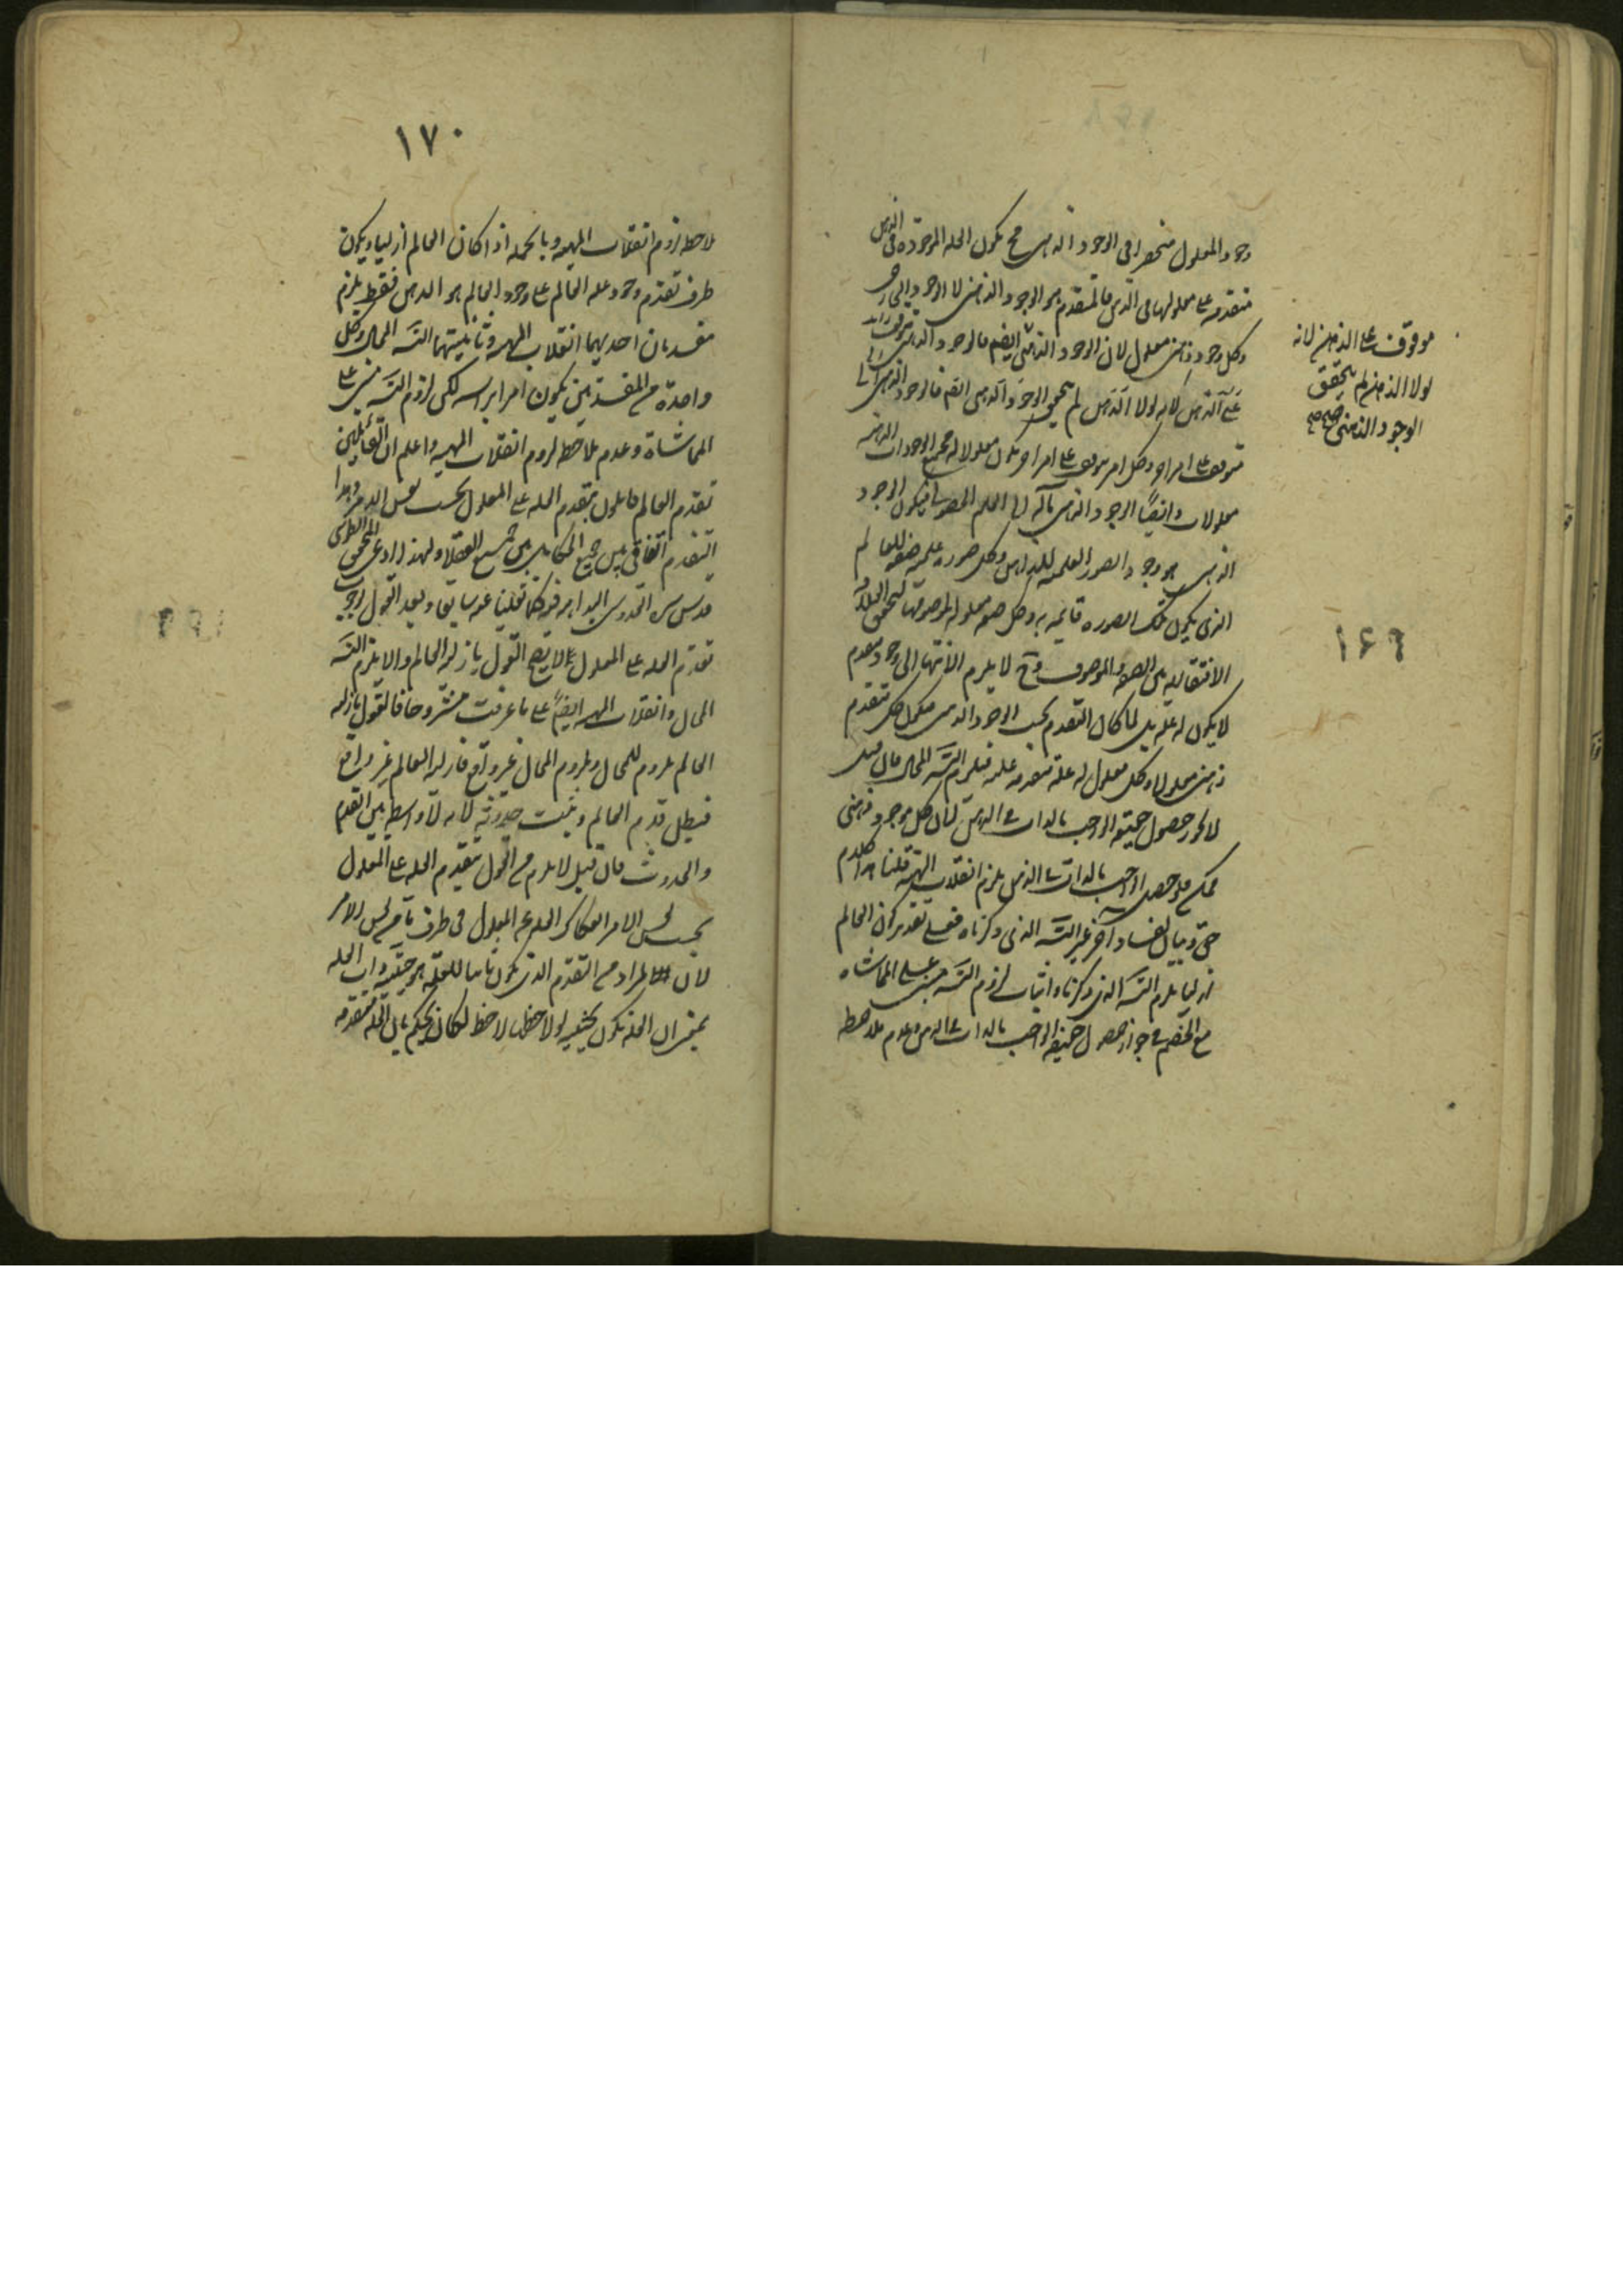 وجود المعلول منحصرا فى الوجود الذهنى فح يكون العله الموجوده فى الذهن
متقدمه على معلولها فى الذهن فالمتقدم هو الوجود الذهنى لا الوجود الخارجى
وكل وجود ذهنى معلول لان الوجود الذهنى ايضم فالوجود الذهنى
على الذهن لانه لولا الذهن لم يتحقق الوجود الذهنى ايضم فالوجود الذهنى
متوقف على امر اخر وكل امر متوقف على امر اخر يكون معلولا له فجميع الوجودات الذهنيه
معلولات وايضًا الوجود الذهنى مآله الى العلم الحصولى فيكون الوجود
الذهنى هو وجود الصور العلميه للذهن وكل صوره علميه صفه للعالم
الذى يكون تلك الصوره قائمه به وكل صفه معلوله لموصوفها لتحقق العلاقه
الافتقاريه بين الصفه والموصوف وح لا يلزم الانتهاء الى وجود متقدم
لا يكون له عله بل لما كان التقدم بحسب الوجود الذهنى فيكون كل متقدم
ذهنى معلولا وكل معلول له علة متقدمه عليه فيلزم التسَه المحال فان قيل
لا يجوز حصول حقيقه الواجب بالذات فى الذهن لان كل موجود ذهنى
ممكن فلو حصل الواجب بالذات فى الذهن يلزم انقلاب المهيه قلنا هذا كلام
حق وبيان لفساد آخر غير التسَه الذى ذكرناه فعلى تقدير كون العالم
ازليا يلزم التسَه الذى ذكرناه واثبات لزوم التسَه مبنى على المماشاه
مع الخصم فى جواز حصول حقيقه الواجب بالذات فى الذهن وعدم ملاحظه
موقوف على الذهن لانه
لولا الذهن لم يتحقق
الوجود الذهنى صح صح
١٦٩
١٧٠
ملاحظه لزوم انقلاب المهيه وبالجمله اذا كان العالم ازليا ويكون
طرف تقدم وجود عله العالم على وجود العالم هو الذهن فقط يلزم
مفسدتان احديهما انقلاب المهيه وثانيتهما التسَه المحال وكل
واحدة من المفسدتين يكون امرا براسه لكن لزوم التسَه مبنى على
المماشاة وعدم ملاحظه لزوم انقلاب المهيه واعلم ان القائلين
تقدم العالم قائلون بتقدم العله على المعلول بحسب نفس الامر وهذا
التقدم اتفاقى بين جميع المتكلمين بين جميع العقلاء ولهذا ادعى المحقق الطوسى
قدس سره القدوسى البداهه فيه كما نقلنا عنه سابقا وبعد القول بوجوب
تقدم العله على المعلول لا يصح القول بازليه العالم والا يلزم التسَه
المحال وانقلاب المهيه ايضًا على ما عرفت مشروحا فالقول بازليه
العالم ملزوم للمحال وملزوم المحال غير واقع فازليه العالم غير واقع
فبطل قدم العالم وثبت حدوثه لانه لا واسطه بين القدم
والحدوث فان قيل لا يلزم من القول بتقدم العله على المعلول
بحسب نفس الامر انفكاك العله عن المعلول فى طرف ما من نفس الامر
لان المراد من التقدم الذى يكون ثابتا للعله هو حقيقه ذات العله
بمعنى ان العله تكون بحيثيه لو لاحظها لاحظ لكان يحكم بان العله متقدمه